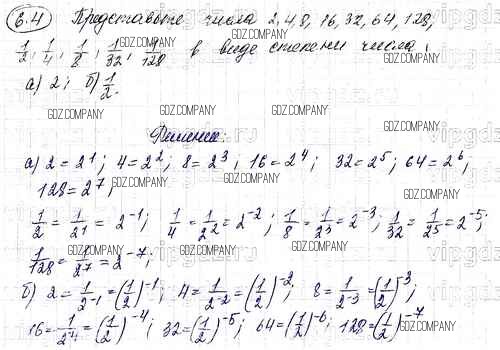 6.4 Представьте числа 2, 4, 8, 16, 32, 64, 128,
1/2, 1/4, 1/8, 1/32, 1/128 в виде степени числа:
а) 2; б) 1/2.
Решение:
а) 2 = 2^1; 4 = 2^2; 8 = 2^3; 16 = 2^4; 32 = 2^5; 64 = 2^6;
128 = 2^7;
1/2 = 1/2^1 = 2^-1; 1/4 = 1/2^2 = 2^-2; 1/8 = 1/2^3 = 2^-3; 1/32 = 1/2^5 = 2^-5;
1/128 = 1/2^7 = 2^-7;
б) 2 = 1/2^-1 = (1/2)^-1; 4 = 1/2^-2 = (1/2)^-2; 8 = 1/2^-3 = (1/2)^-3
16 = 1/2^4 = (1/2)^-4; 32 = (1/2)^-5; 64 = (1/2)^-6; 128 = (1/2)^-7
GDZ.COMPANY
vipgdz.ru